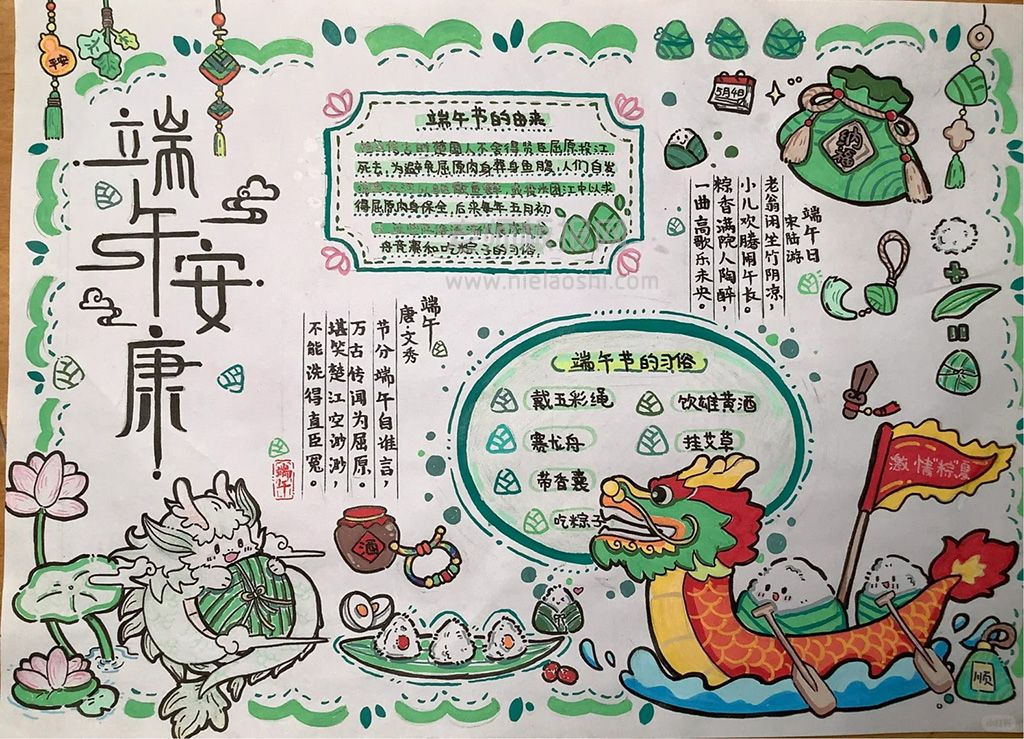 平安
端午安康
端午节的由来
楚国人不舍得贤臣屈原投江
死去,为避免屈原肉身葬身鱼腹,人们自发
米团江中以求
得屈原肉身保全,后来每年五月初
舟竞渡和吃粽子的习俗,
www.nielaoshi.com
5月4日
纳福
端午日
宋陆游
老翁闲坐竹阴凉,
小儿欢腾闹午长。
粽香满院人陶醉,
一曲高歌乐未央。
端午
唐文秀
节分端午自谁言,
万古传闻为屈原。
堪笑楚江空渺渺,
不能洗得直臣冤。
端午
端午节的习俗
戴五彩绳
饮雄黄酒
赛龙舟
挂艾草
带香囊
吃粽子
激情"粽"夏
酒
顺
小红书